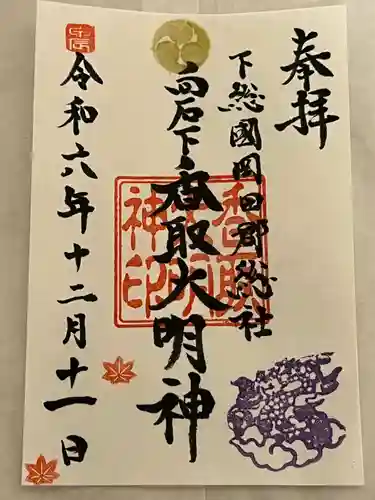 奉拝
下総國岡田郡総社
向石下香取大明神
令和六年十二月十一日
香取
大明
神印